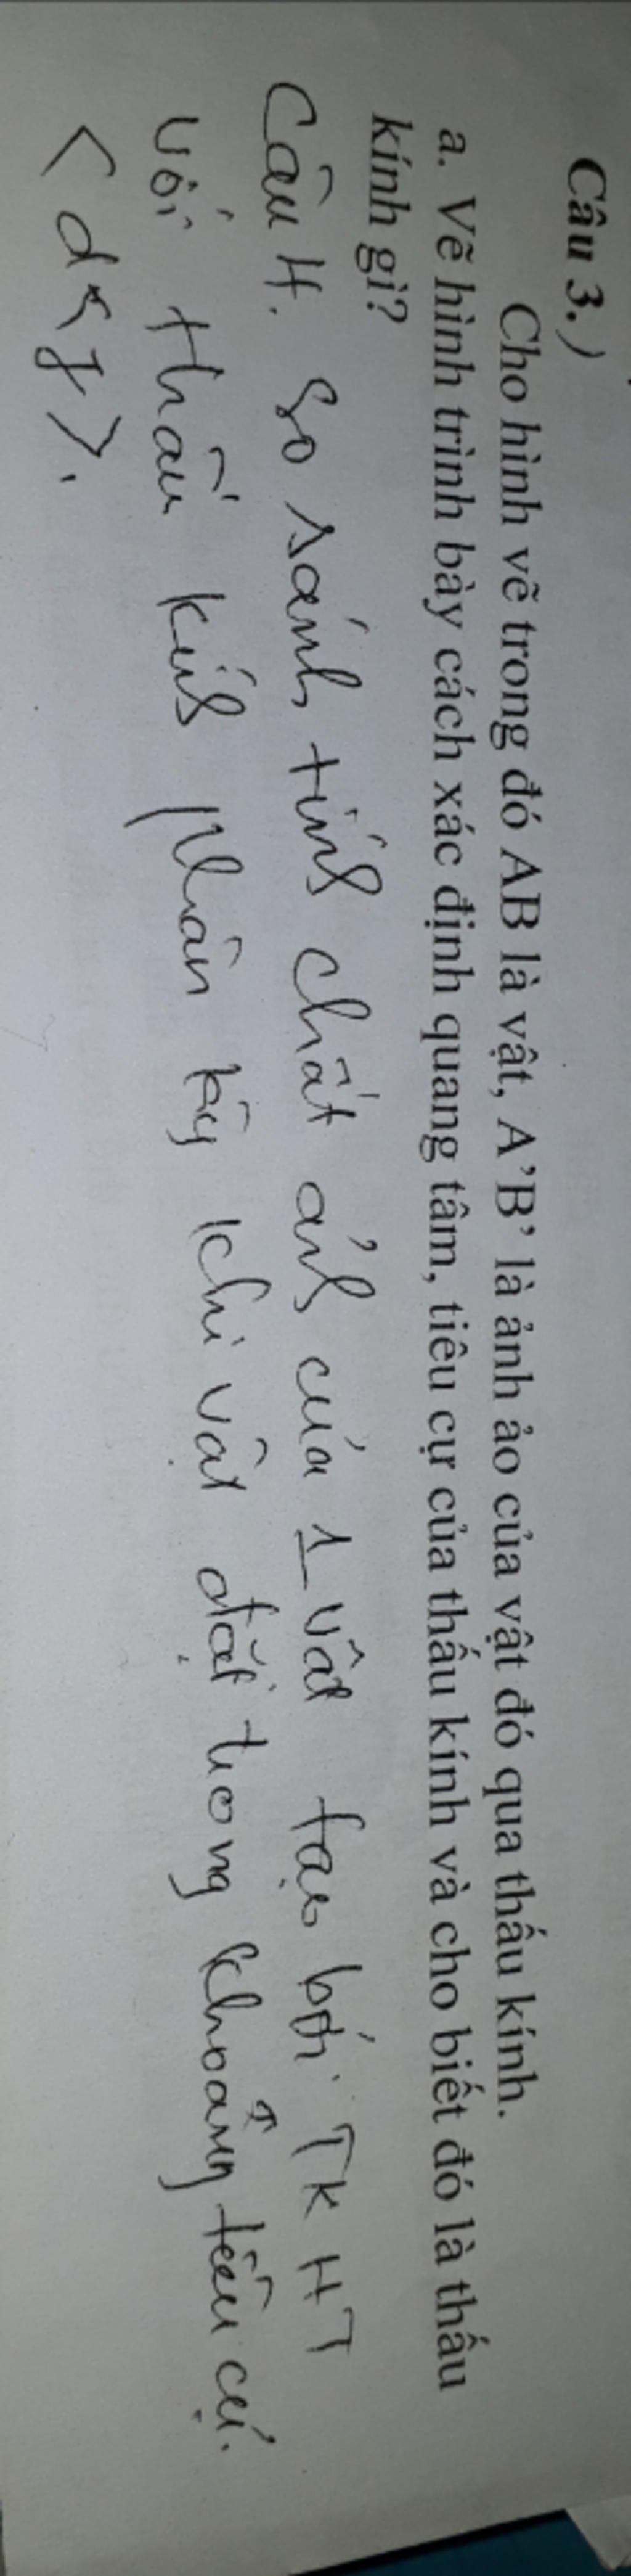 Câu 3.)
Cho hình vẽ trong đó AB là vật, A’B’ là ảnh ảo của vật đó qua thấu kính.
a. Vẽ hình trình bày cách xác định quang tâm, tiêu cự của thấu kính và cho biết đó là thấu
kính gì?
Câu 4. So sánh tính chất ảnh của 1 vật tạo bởi TKHT
với thấu kính phân kỳ khi vật đặt trong khoảng tiêu cự.
< d < f >.